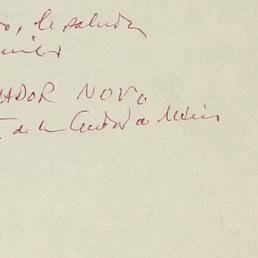 o, le saluda
ADOR NOVO
de la Ciudad de México